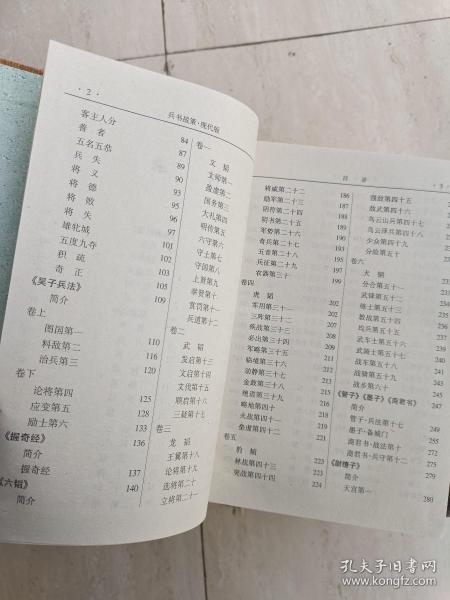 · 2 ·
兵书战策·现代版
客主人分 84
善者 87
五名五恭 89
兵失 90
将义 93
将德 95
将败 97
将失 98
雄牝城 101
五度九夺 103
积疏 105
奇正 105
《吴子兵法》 109
简介
卷上
图国第一 110
料敌第二 116
治兵第三 120
卷下
论将第四 125
应变第五 128
励士第六 133
《握奇经》 136
简介
握奇经 137
《六韬》 140
简介
卷一
文韬
文师第一
盈虚第二
国务第三
大礼第四
明传第五
六守第六
守土第七
守国第八
上贤第九
举贤第十
赏罚第十一
兵道第十二
卷二
武韬
发启第十三
文启第十四
文伐第十五
顺启第十六
三疑第十七
卷三
龙韬
王翼第十八
论将第十九
选将第二十
立将第二十一
目录
将威第二十二 186
励军第二十三 187
阴符第二十四
阴书第二十五
军势第二十六
奇兵第二十七
五音第二十八
兵征第二十九
农器第三十 199
卷四
虎韬
军用第三十一 202
三阵第三十二
疾战第三十三
必出第三十四
军略第三十五
临境第三十六
动静第三十七
金鼓第三十八
绝道第三十九
略地第四十
火战第四十一
垒虚第四十二
卷五
豹韬
林战第四十三 223
突战第四十四 224
强敌第四十五
敌武第四十六
乌云山兵第四十七
乌云泽兵第四十八
少众第四十九
分险第五十
卷六
犬韬
分合第五十一
武锋第五十二
练士第五十三
教战第五十四
均兵第五十五
武车士第五十六
武骑士第五十七
战车第五十八
战骑第五十九
战步第六十
《管子》《墨子》《商君书》
简介
管子·兵法第十七
墨子·备城门
商君书·战法第十
商君书·兵守第十二
《尉缭子》
简介
天官第一 280
孔夫子旧书网
www.kongfz.com